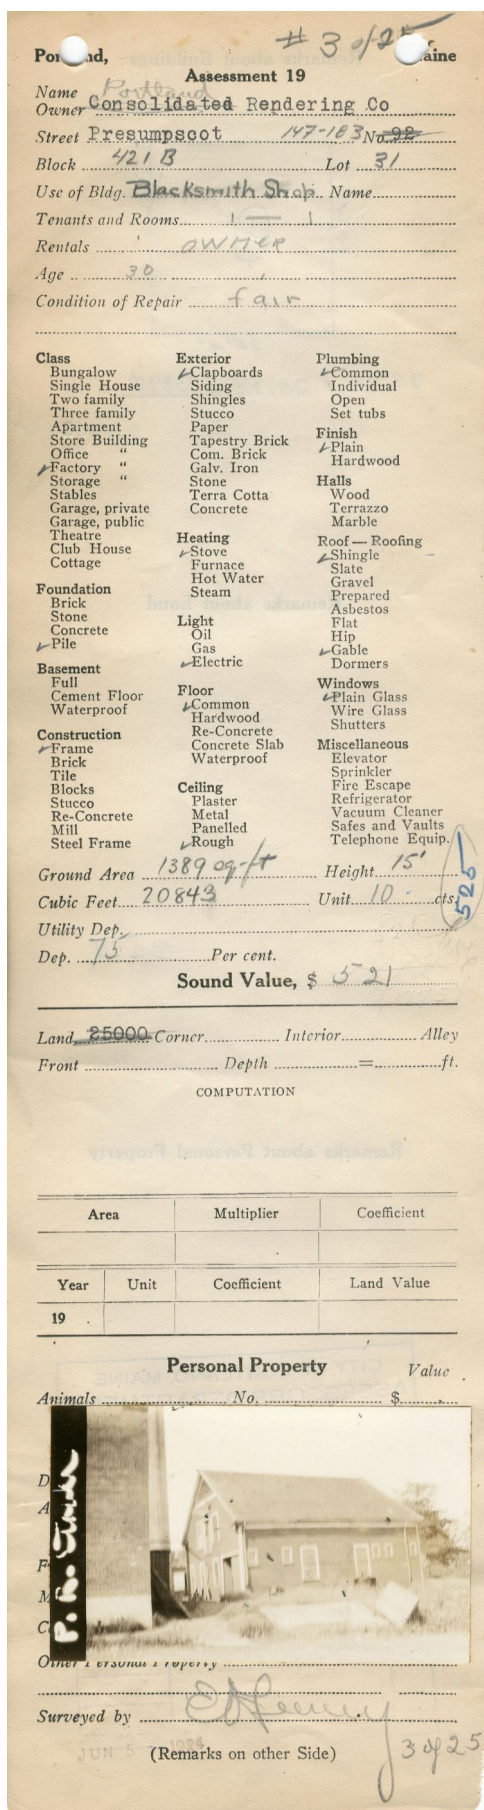 # 3 of 25
Portland, Maine
Assessment 19
Name Portland
Owner Consolidated Rendering Co
Street Presumpscot 147-183 No 92
Block 421 B Lot 31
Use of Bldg. Blacksmith Shop Name
Tenants and Rooms 1 — 1
Rentals owner
Age 30
Condition of Repair fair
Class
Bungalow
Single House
Two family
Three family
Apartment
Store Building
Office "
✓Factory "
Storage "
Stables
Garage, private
Garage, public
Theatre
Club House
Cottage
Foundation
Brick
Stone
Concrete
✓Pile
Basement
Full
Cement Floor
Waterproof
Construction
✓Frame
Brick
Tile
Blocks
Stucco
Re-Concrete
Mill
Steel Frame
Exterior
✓Clapboards
Siding
Shingles
Stucco
Paper
Tapestry Brick
Com. Brick
Galv. Iron
Stone
Terra Cotta
Concrete
Heating
✓Stove
Furnace
Hot Water
Steam
Light
Oil
Gas
✓Electric
Floor
✓Common
Hardwood
Re-Concrete
Concrete Slab
Waterproof
Ceiling
Plaster
Metal
Panelled
✓Rough
Plumbing
✓Common
Individual
Open
Set tubs
Finish
✓Plain
Hardwood
Halls
Wood
Terrazzo
Marble
Roof — Roofing
✓Shingle
Slate
Gravel
Prepared
Asbestos
Flat
Hip
✓Gable
Dormers
Windows
✓Plain Glass
Wire Glass
Shutters
Miscellaneous
Elevator
Sprinkler
Fire Escape
Refrigerator
Vacuum Cleaner
Safes and Vaults
Telephone Equip.
Ground Area 1389 sq-ft Height 15'
Cubic Feet 20843 Unit 10 cts.
525
Utility Dep.
Dep. 75 Per cent.
Sound Value, $ 521
Land 25000 Corner Interior Alley
Front Depth = ft.
COMPUTATION
Area Multiplier Coefficient
Year Unit Coefficient Land Value
19
Personal Property Value
Animals No. $
D
A
F
M
C
P. R. Strake
Other Personal Property
Surveyed by
JUN 5 1924
(Remarks on other Side) 3 of 25